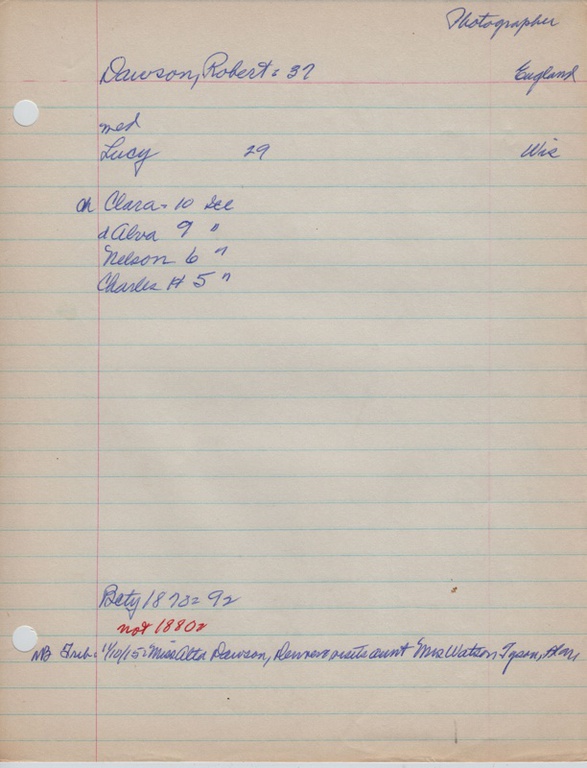 Photographer
Dawson, Robert = 37 England
med
Lucy 29 Wis
ch Clara - 10 Ill
d Alva 9 "
Nelson 6 "
Charles H 5 "
1870 = 92
not 1880
NB Trib. 1/10/15 = Miss Alta Dawson, Denver visits aunt Mrs Watson Tyson,